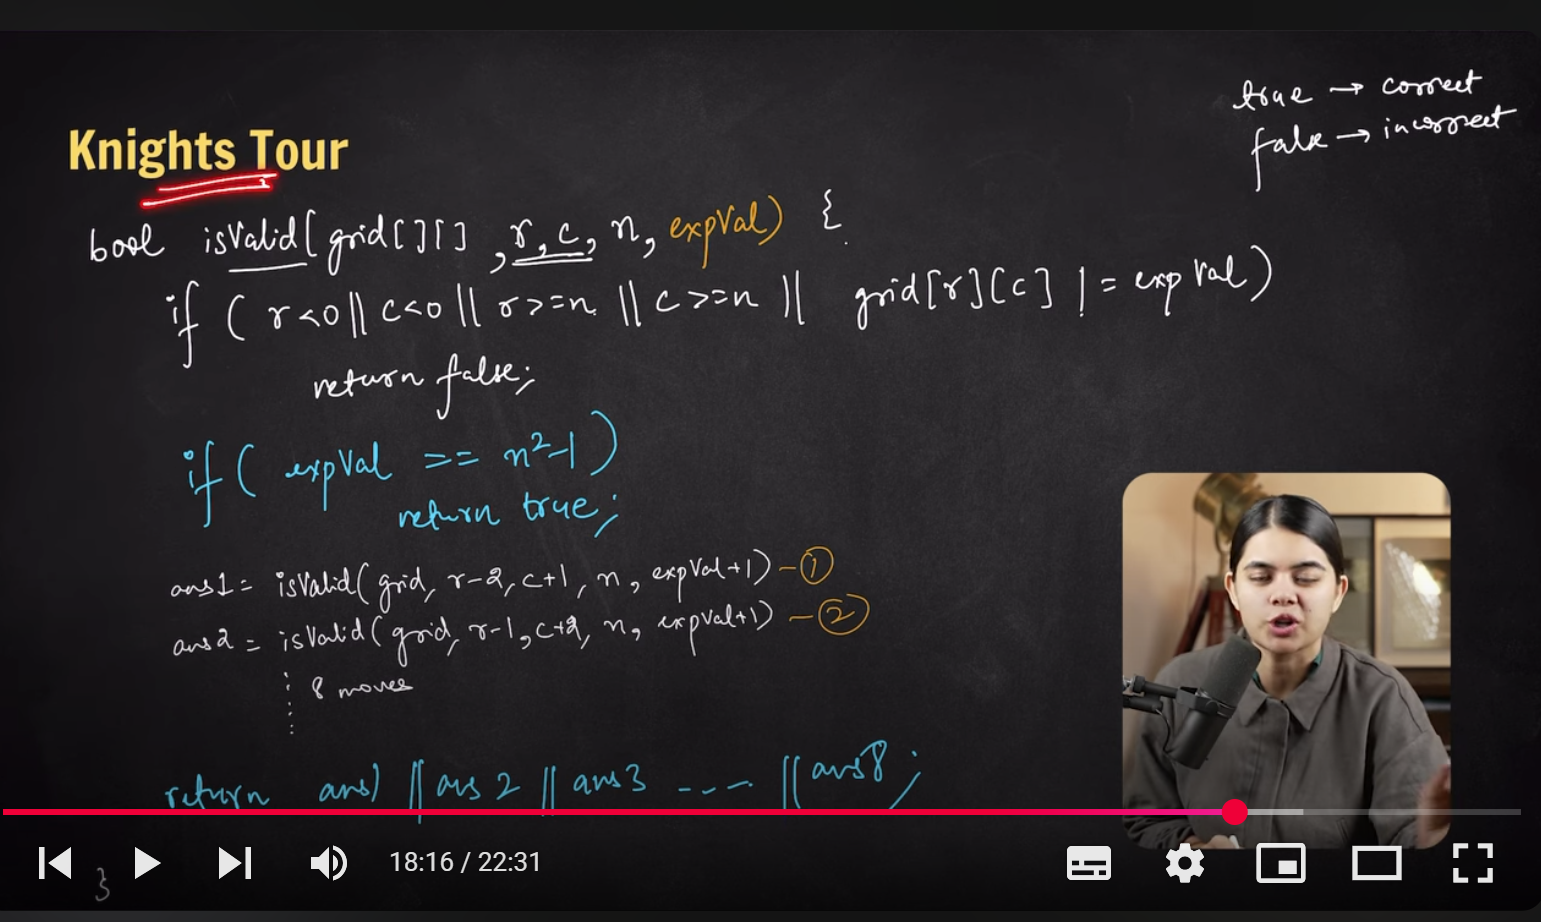 true → correct
false → incorrect
Knights Tour
bool isValid(grid[][], r, c, n, expVal) {
if ( r<0 || c<0 || r>=n || c>=n || grid[r][c] != expVal)
return false;
if ( expVal == n²-1)
return true;
ans1 = isValid(grid, r-2, c+1, n, expVal+1) - ①
ans2 = isValid(grid, r-1, c+2, n, expVal+1) - ②
8 moves
return ans1 || ans2 || ans3 ---- || ans8;
18:16 / 22:31
}